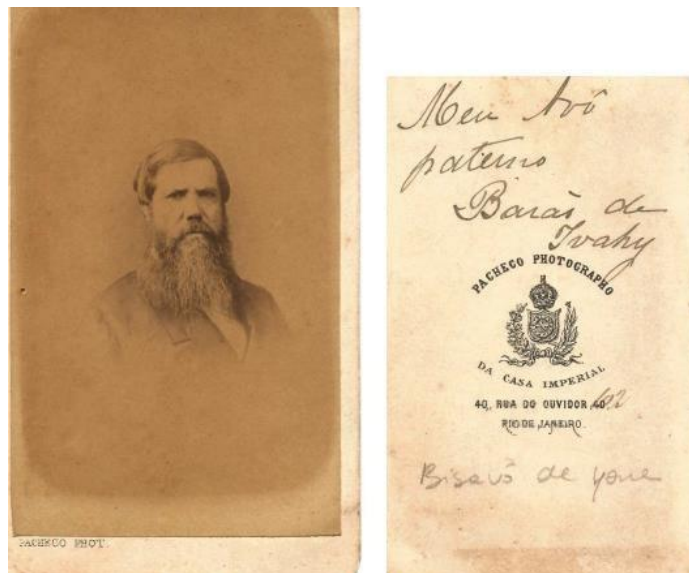 PACHECO PHOT.
Meu Avô
paterno
Barão de
Ivahy
PACHECO PHOTOGRAPHO
DA CASA IMPERIAL
40, RUA DO OUVIDOR 40
RIO DE JANEIRO.
Bisavô de Yone